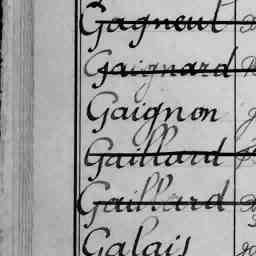 Gagneul
Gaignard
Gaignon
Gaillard
Gaillard
Galais